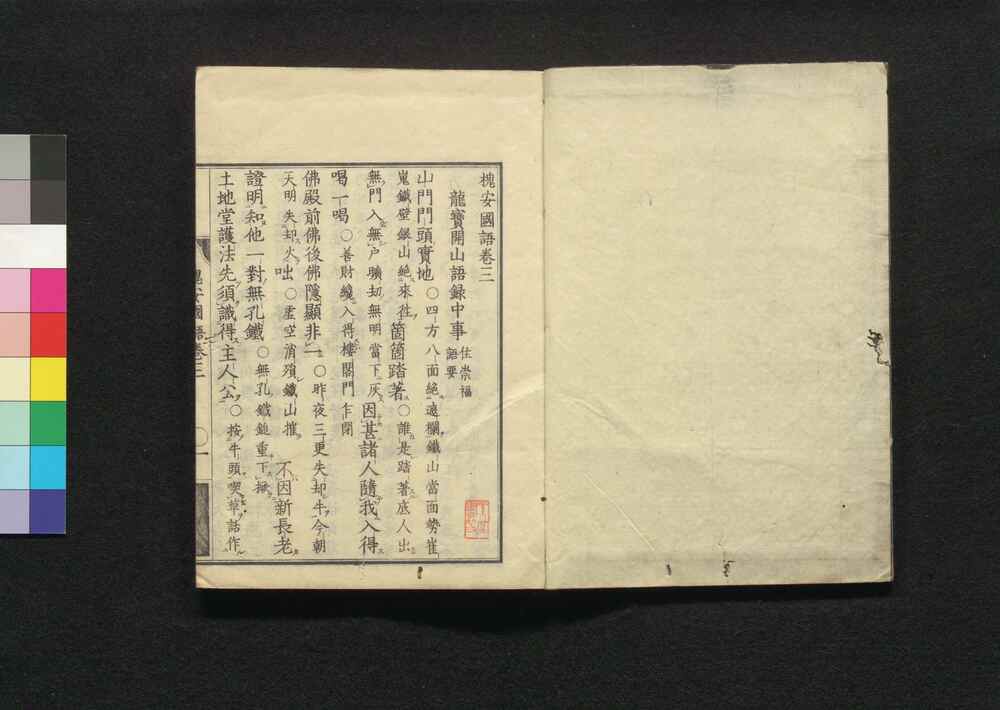 槐安國語卷三
龍寶開山語録中事 住崇福語要
山門門頭實地○四方八面絶遮欄鐵山當面勢崔
嵬鐵壁銀山絶來往箇箇踏著○誰是踏著底人出
無門入無户曠劫無明當下灰因甚諸人隨我入得
喝一喝○善財纔入得樓閣門乍閉
佛殿前佛後佛隱顯非二○昨夜三更失却牛今朝
天明失却火咄○虚空消殞鐵山摧不因新長老
證明知他一對無孔鐵○無孔鐵鎚重下楔
土地堂護法先須識得主人公○按牛頭喫草話作
槐安國語卷三 ○一